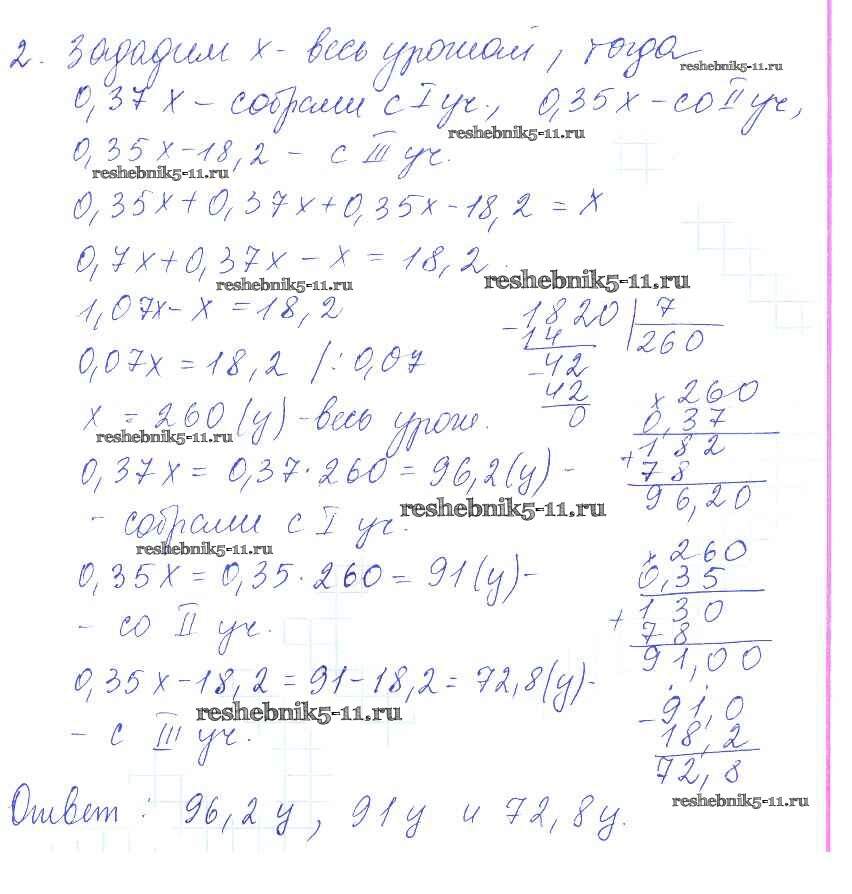 2. Зададим x - весь урожай, тогда
reshebnik5-11.ru
0,37x - собрали с I уч., 0,35x - со II уч,
reshebnik5-11.ru
0,35x - 18,2 - с III уч.
reshebnik5-11.ru
0,35x + 0,37x + 0,35x - 18,2 = x
0,7x + 0,37x - x = 18,2
reshebnik5-11.ru
reshebnik5-11.ru
1,07x - x = 18,2
0,07x = 18,2 /: 0,07
x = 260 (ц) - весь урож.
reshebnik5-11.ru
0,37x = 0,37 · 260 = 96,2 (ц) -
- собрали с I уч.
reshebnik5-11.ru
reshebnik5-11.ru
0,35x = 0,35 · 260 = 91 (ц) -
- со II уч.
0,35x - 18,2 = 91 - 18,2 = 72,8 (ц) -
- с III уч.
reshebnik5-11.ru
- 1820 | 7
14 | 260
- 42
42
0
x 260
0,37
+ 182
78
96,20
x 260
0,35
+ 130
78
91,00
- 91,0
18,2
72,8
reshebnik5-11.ru
Ответ: 96,2 ц, 91 ц и 72,8 ц.